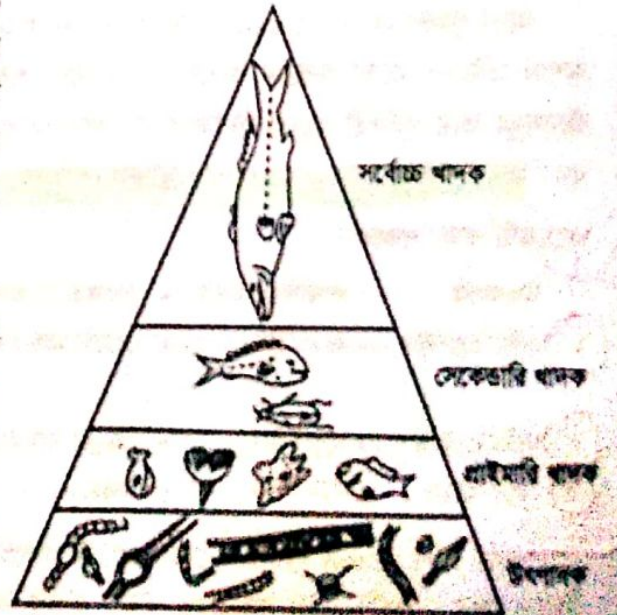 সর্বোচ্চ খাদক
সেকেন্ডারি খাদক
প্রাইমারি খাদক
উৎপাদক